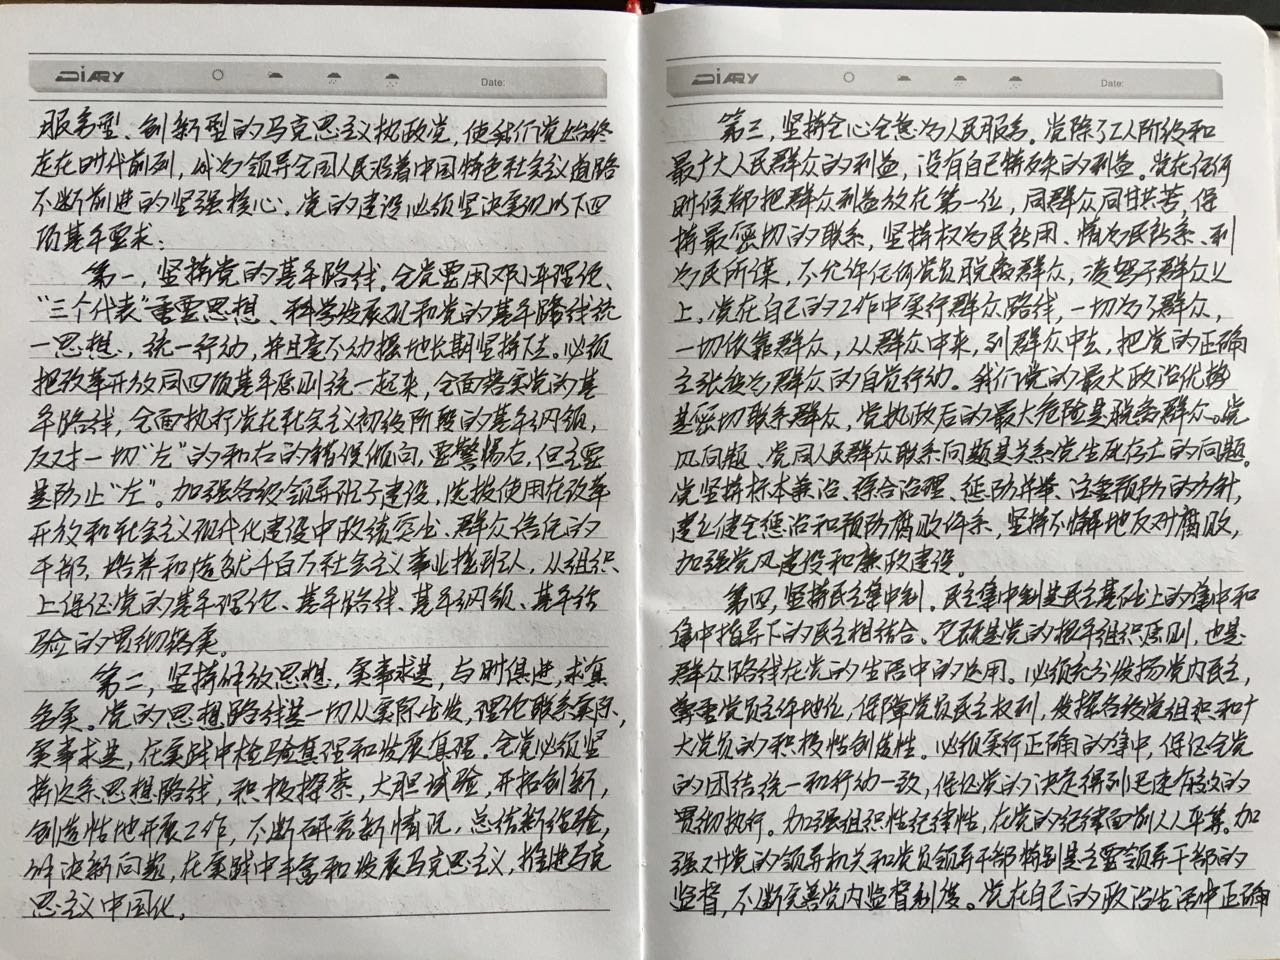 DiARY
Date:
服务型、创新型的马克思主义执政党，使我们党始终
走在时代前列，成为领导全国人民沿着中国特色社会主义道路
不断前进的坚强核心。党的建设必须坚决实现以下四
项基本要求：
第一，坚持党的基本路线。全党要用邓小平理论、
“三个代表”重要思想、科学发展观和党的基本路线统
一思想，统一行动，并且毫不动摇地长期坚持下去。必须
把改革开放同四项基本原则统一起来，全面落实党的基
本路线，全面执行党在社会主义初级阶段的基本纲领，
反对一切“左”的和右的错误倾向，要警惕右，但主要
是防止“左”。加强各级领导班子建设，选拔使用在改革
开放和社会主义现代化建设中政绩突出、群众信任的
干部，培养和造就千百万社会主义事业接班人，从组织
上保证党的基本理论、基本路线、基本纲领、基本经
验的贯彻落实。
第二，坚持解放思想，实事求是，与时俱进，求真
务实。党的思想路线是一切从实际出发，理论联系实际，
实事求是，在实践中检验真理和发展真理。全党必须坚
持这条思想路线，积极探索，大胆试验，开拓创新，
创造性地开展工作，不断研究新情况，总结新经验，
解决新问题，在实践中丰富和发展马克思主义，推进马克
思主义中国化。
DiARY
Date:
第三，坚持全心全意为人民服务。党除了工人阶级和
最广大人民群众的利益，没有自己特殊的利益。党在任何
时候都把群众利益放在第一位，同群众同甘共苦，保
持最密切的联系，坚持权为民所用、情为民所系、利
为民所谋，不允许任何党员脱离群众，凌驾于群众之
上。党在自己的工作中实行群众路线，一切为了群众，
一切依靠群众，从群众中来，到群众中去，把党的正确
主张变为群众的自觉行动。我们党的最大政治优势
是密切联系群众，党执政后的最大危险是脱离群众。党
风问题、党同人民群众联系问题是关系党生死存亡的问题。
党坚持标本兼治、综合治理、惩防并举、注重预防的方针，
建立健全惩治和预防腐败体系，坚持不懈地反对腐败，
加强党风建设和廉政建设。
第四，坚持民主集中制。民主集中制是民主基础上的集中和
集中指导下的民主相结合。它既是党的根本组织原则，也是
群众路线在党的生活中的运用。必须充分发扬党内民主，
尊重党员主体地位，保障党员民主权利，发挥各级党组织和广
大党员的积极性创造性。必须实行正确的集中，保证全党
的团结统一和行动一致，保证党的决定得到迅速有效的
贯彻执行。加强组织性纪律性，在党的纪律面前人人平等。加
强对党的领导机关和党员领导干部特别是主要领导干部的
监督，不断完善党内监督制度。党在自己的政治生活中正确